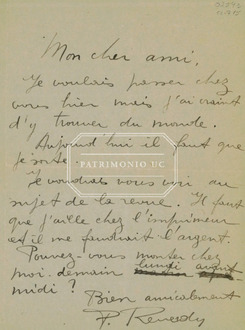 Mon cher ami,
Je voulais passer chez
vous hier mais j'ai craint
d'y trouver du monde.
Aujourd'hui il faut que
je sorte.
PATRIMONIO UC
Je voudrais vous voir au
sujet de la revue. Il faut
que j'aille chez l'imprimeur
et il me faudrait l'argent.
Pouvez-vous monter chez
moi demain lundi avant-
midi ?
Bien amicalement
P. Reverdy